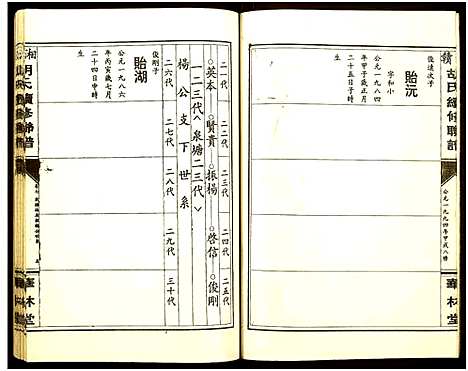 胡氏續修聯譜
公元一九九四年甲戌八修
華林堂
俊達次子
貽沅
字和小
公元一九八四
年甲子歲正月
二十五日子時
二一代
二二代
二三代
二四代
二五代
英本——○賢貴——○振楊——○啓信——○俊剛
一二三代〈泉塘二三代〉
楊公支下世系
二六代
二七代
二八代
二九代
三十代
俊剛子
貽湖
公元一九八六
年丙寅歲七月
二十四日申時
胡氏續修聯譜
華林堂